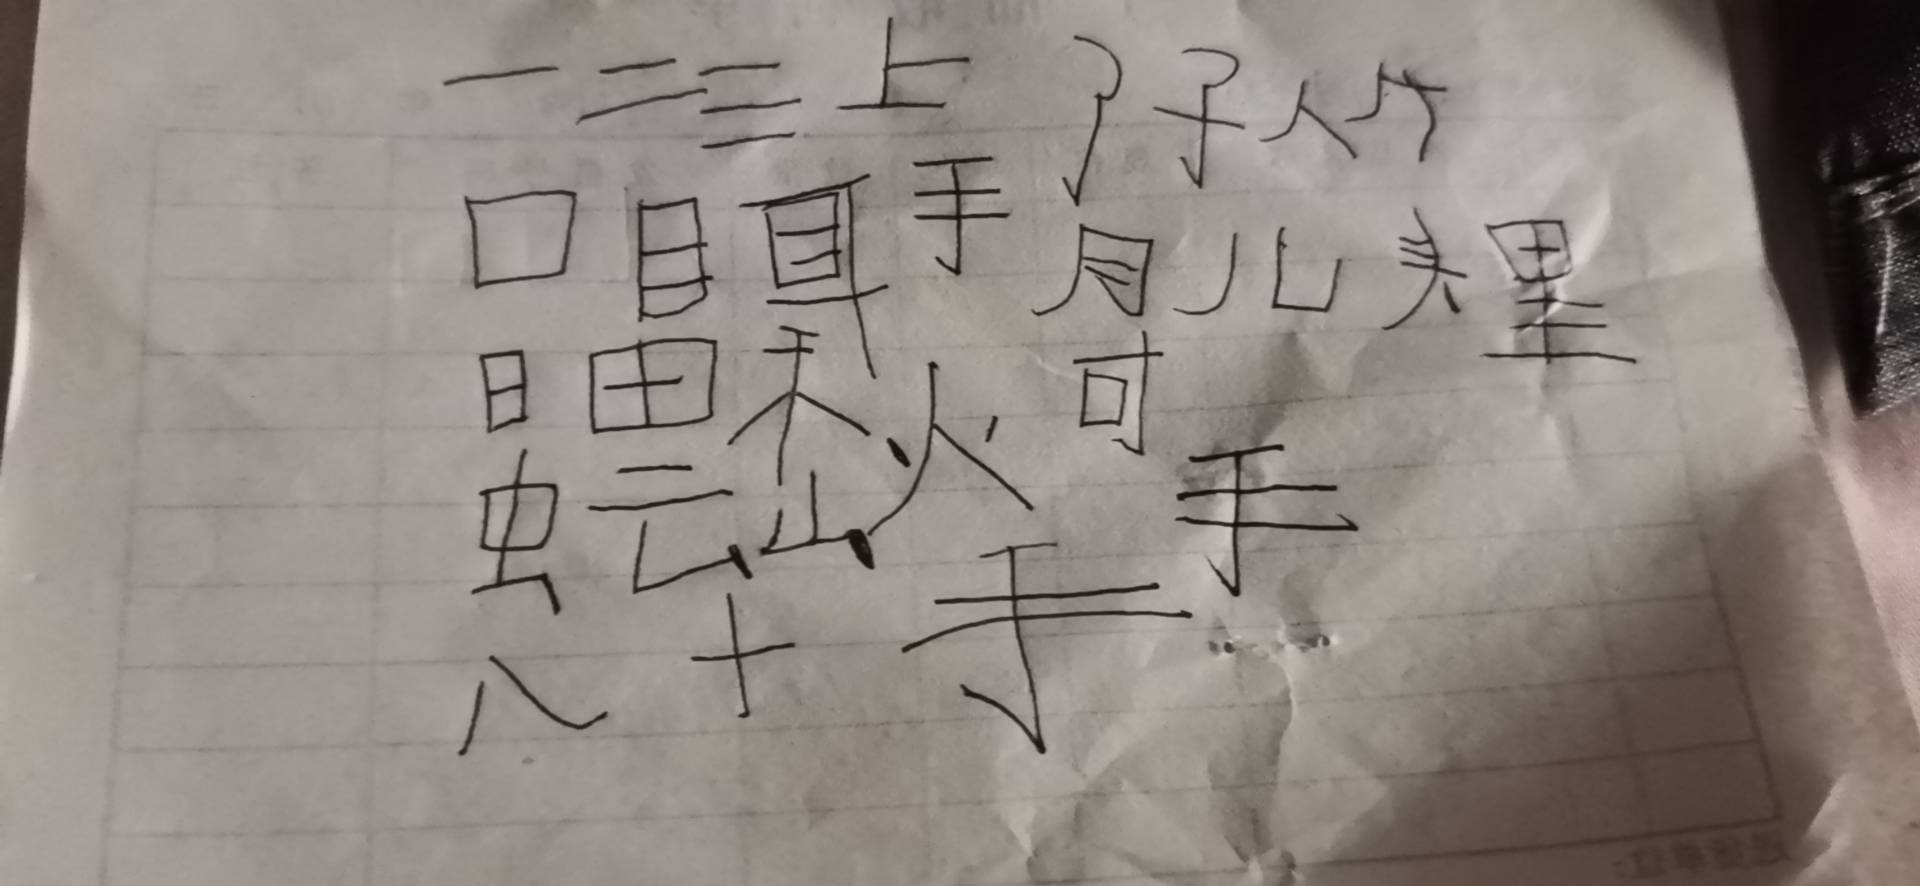 一二三上了子人个
口目耳手月儿头里
日田禾火可
虫云山手
八十手